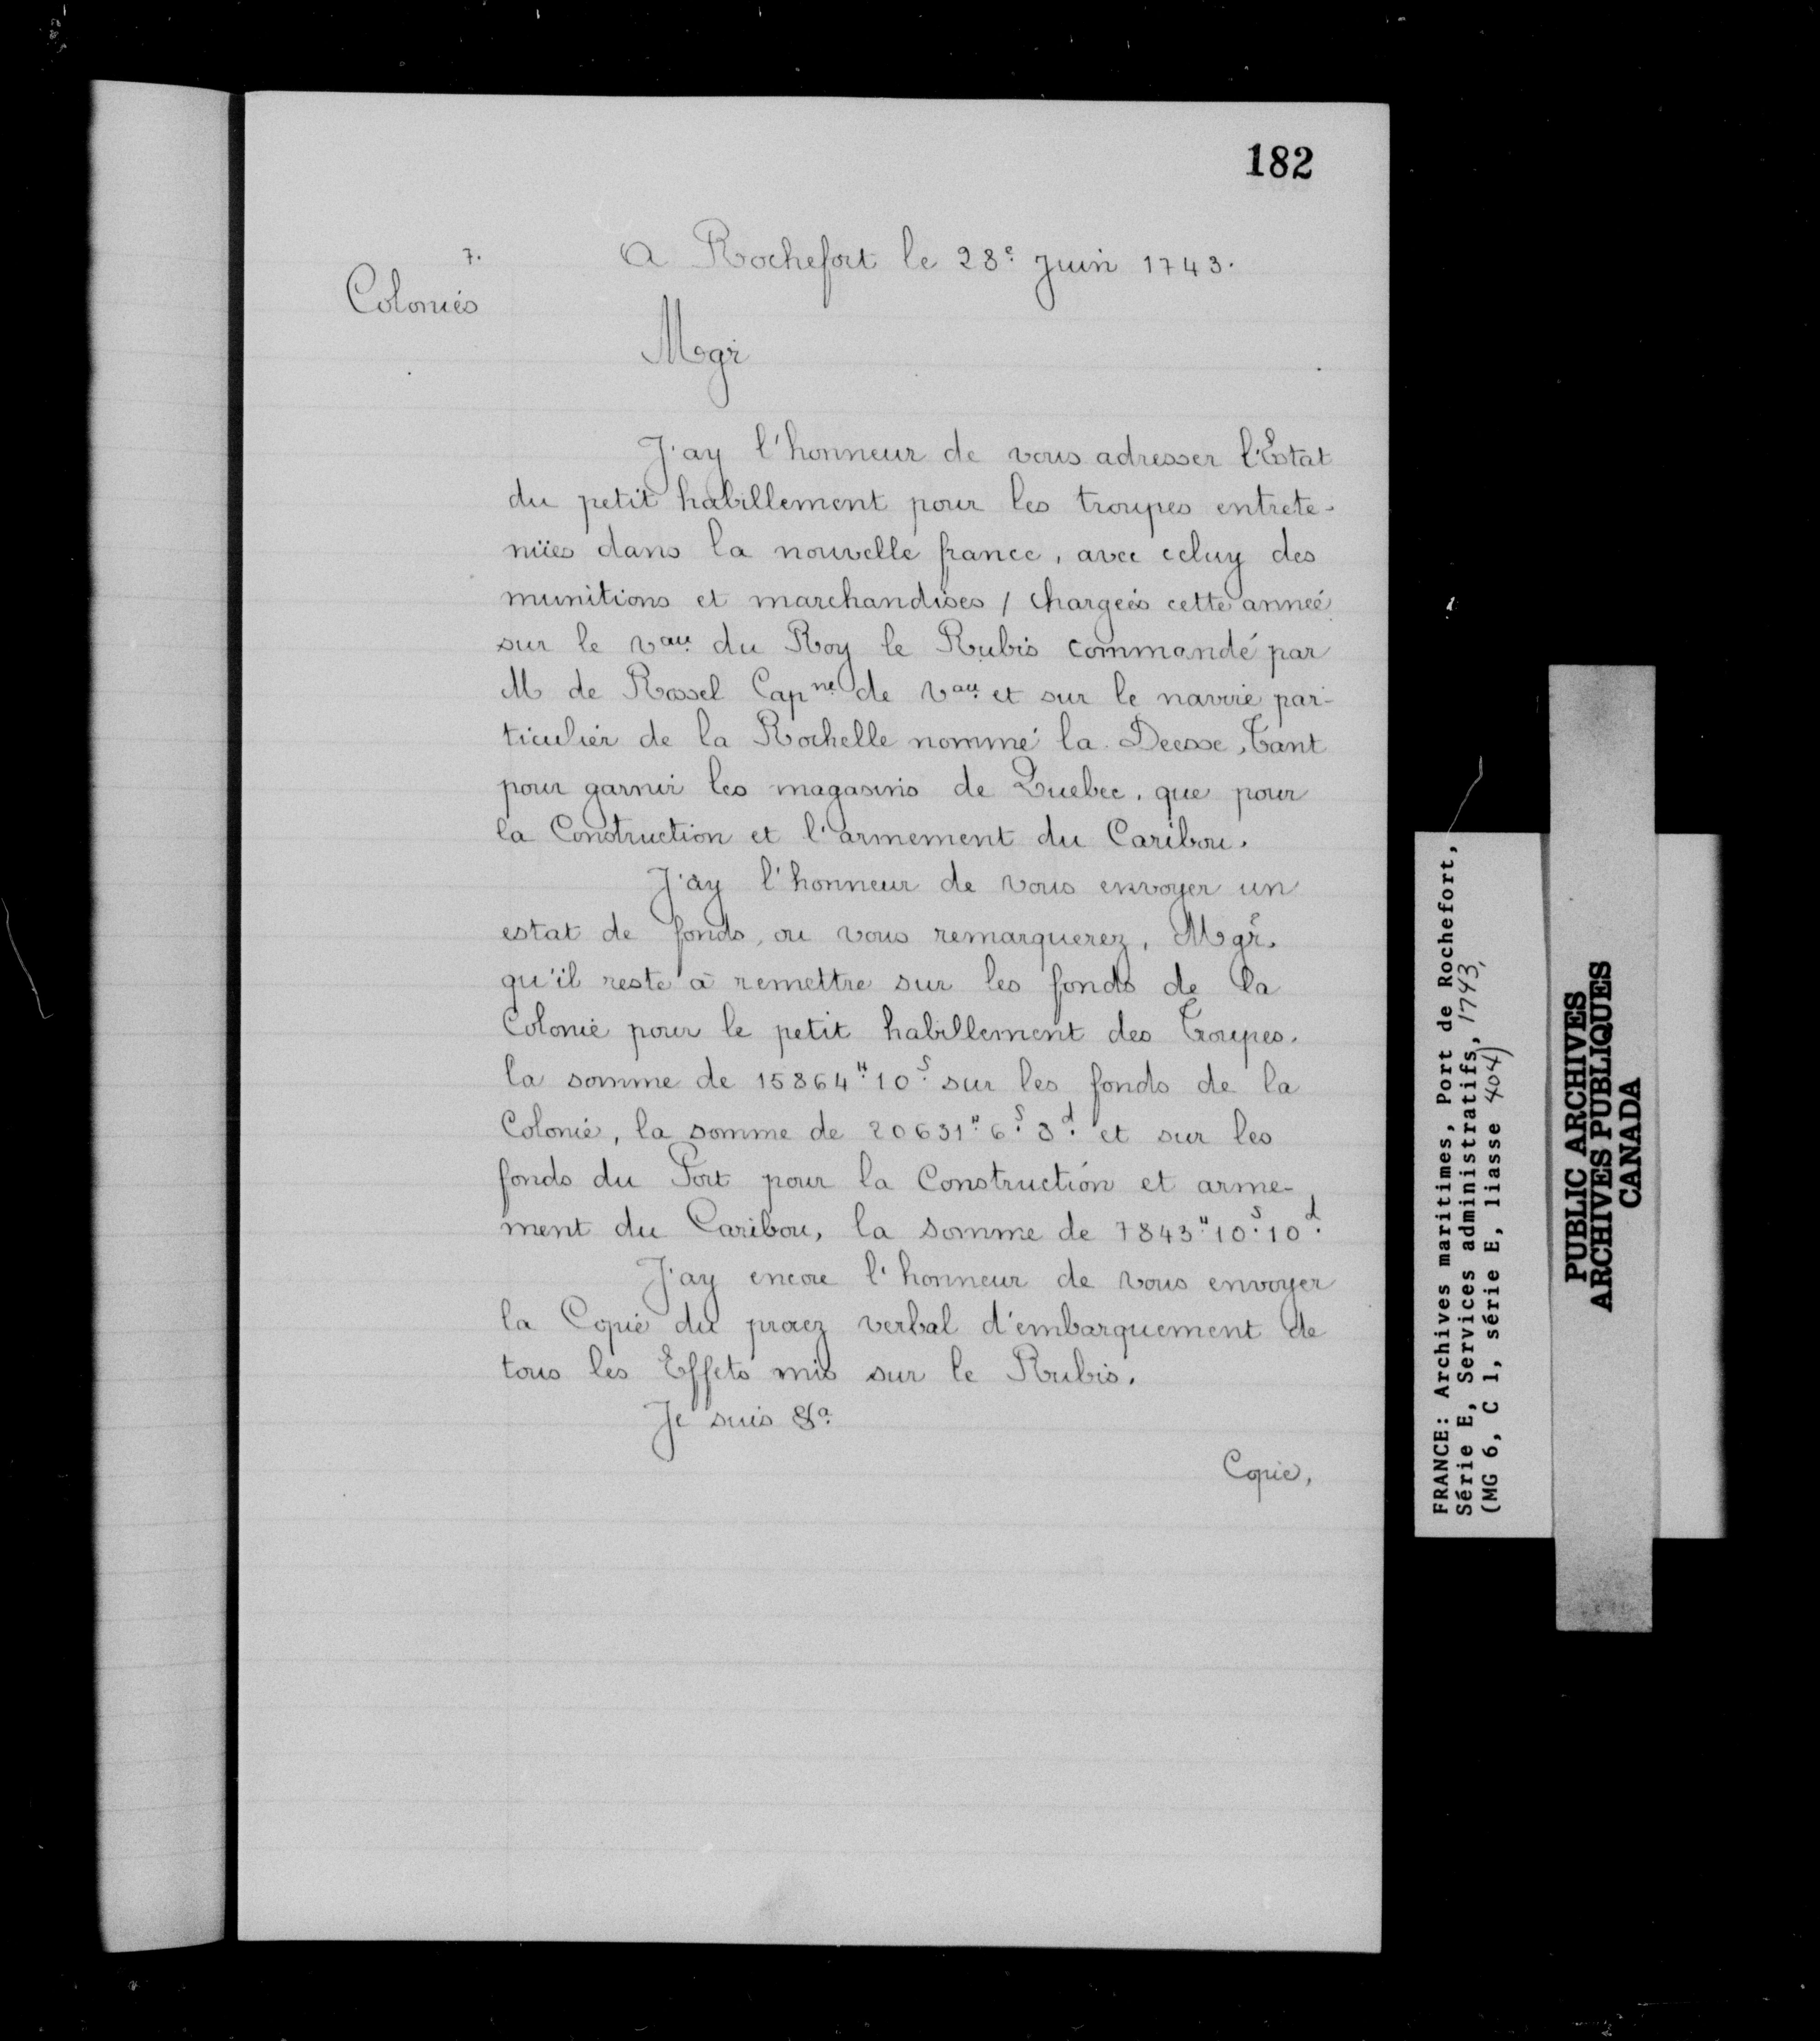 182
7.
A Rochefort le 28e Juin 1743.
Colonies
Mgr
J'ay l'honneur de vous adresser l'Estat
du petit habillement pour les troupes entrete-
nües dans la nouvelle france, avec celuy des
munitions et marchandises / chargeés cette anneé
sur le vau. du Roy le Rubis commandé par
M de Rossel Capne de vau. et sur le navire par-
ticulier de la Rochelle nommé la Deesse, Tant
pour garnir les magasins de Quebec, que pour
la Construction et l'armement du Caribou.
J'ay l'honneur de vous envoyer un
estat de fonds, ou vous remarquerez, Mgr.
qu'il reste à remettre sur les fonds de la
Colonie pour le petit habillement des Troupes.
la somme de 15864" 10s sur les fonds de la
Colonie, la somme de 20631" 6s 3d. et sur les
fonds du Port pour la Construction et arme-
ment du Caribou, la somme de 7843" 10s 10d.
J'ay encore l'honneur de vous envoyer
la Copie du procez verbal d'embarquement de
tous les Effets mis sur le Rubis.
Je suis &a
Copie,
FRANCE: Archives maritimes, Port de Rochefort,
Série E, Services administratifs, 1743,
(MG 6, C 1, série E, liasse 404)
PUBLIC ARCHIVES
ARCHIVES PUBLIQUES
CANADA